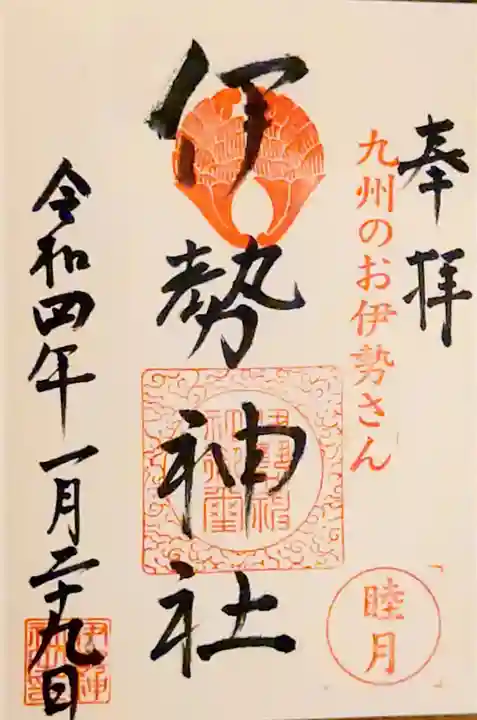 奉拝
九州のお伊勢さん
伊勢神社
睦月
令和四年一月二十九日